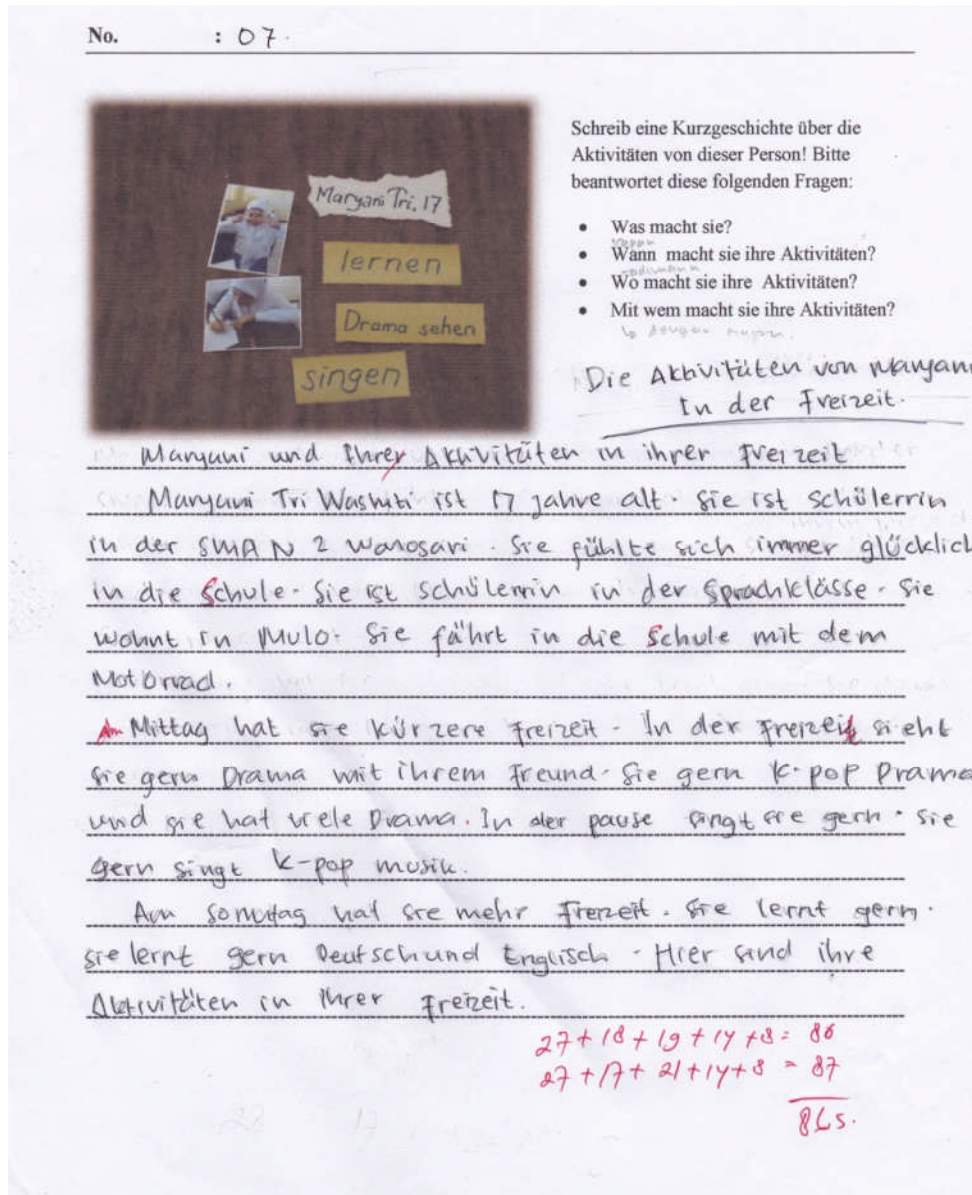 No. : 07.
Maryani Tri, 17
lernen
Drama sehen
singen
Schreib eine Kurzgeschichte über die
Aktivitäten von dieser Person! Bitte
beantwortet diese folgenden Fragen:
• Was macht sie?
kapan
• Wann macht sie ihre Aktivitäten?
• Wo macht sie ihre Aktivitäten?
• Mit wem macht sie ihre Aktivitäten?
Die Aktivitäten von Maryani
In der Freizeit.
Maryani und Ihrer Aktivitäten in ihrer Freizeit
Maryani Tri ist 17 Jahre alt. Sie ist Schülerrin
in der SMA N 2 Wonosari. Sie fühlte sich immer glücklich
in die Schule. Sie ist Schülerrin in der Sprachklässe. Sie
wohnt in Mulo. Sie fährt in die Schule mit dem
Motorrad.
Am Mittag hat sie kürzere Freizeit. In der Freizeit sieht
sie gern Drama mit ihrem Freund. Sie gern K-pop Drama
und sie hat viele Drama. In der pause singt sie gern. Sie
gern singt K-pop musik.
Am Sonntag hat sie mehr Freizeit. Sie lernt gern.
sie lernt gern Deutsch und Englisch. Hier sind ihre
Aktivitäten in Ihrer Freizeit.
27+18+19+14+8= 86
27+17+21+14+8 = 87